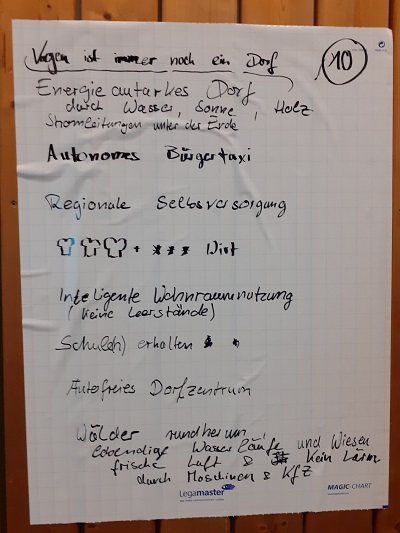 Vogen ist immer noch ein Dorf
10
Energie autarkes Dorf
durch Wasser, Sonne, Holz
Stromleitungen unter der Erde
Autonomes Bürgertaxi
Regionale Selbsversorgung
+ *** Wirt
Inteligente Wohnraumnutzung
(keine Leerstände)
Schule(n) erhalten
Autofreies Dorfzentrum
Wälder rundherum
lebendige Wasserläufe und Wiesen
frische Luft & kein Lärm
durch Maschinen & Kfz
Legamaster
MAGIC-CHART